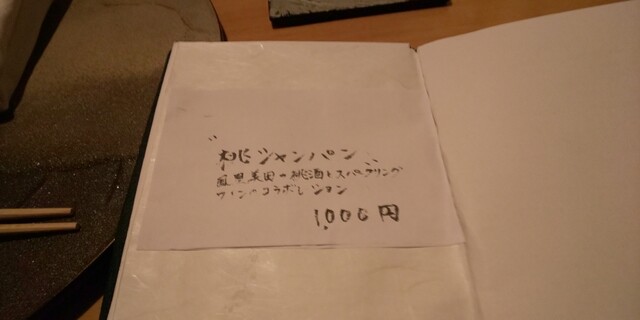 "桃シャンパン"
鳳凰美田の桃酒とスパークリング
ワインのコラボレーション
1,000円